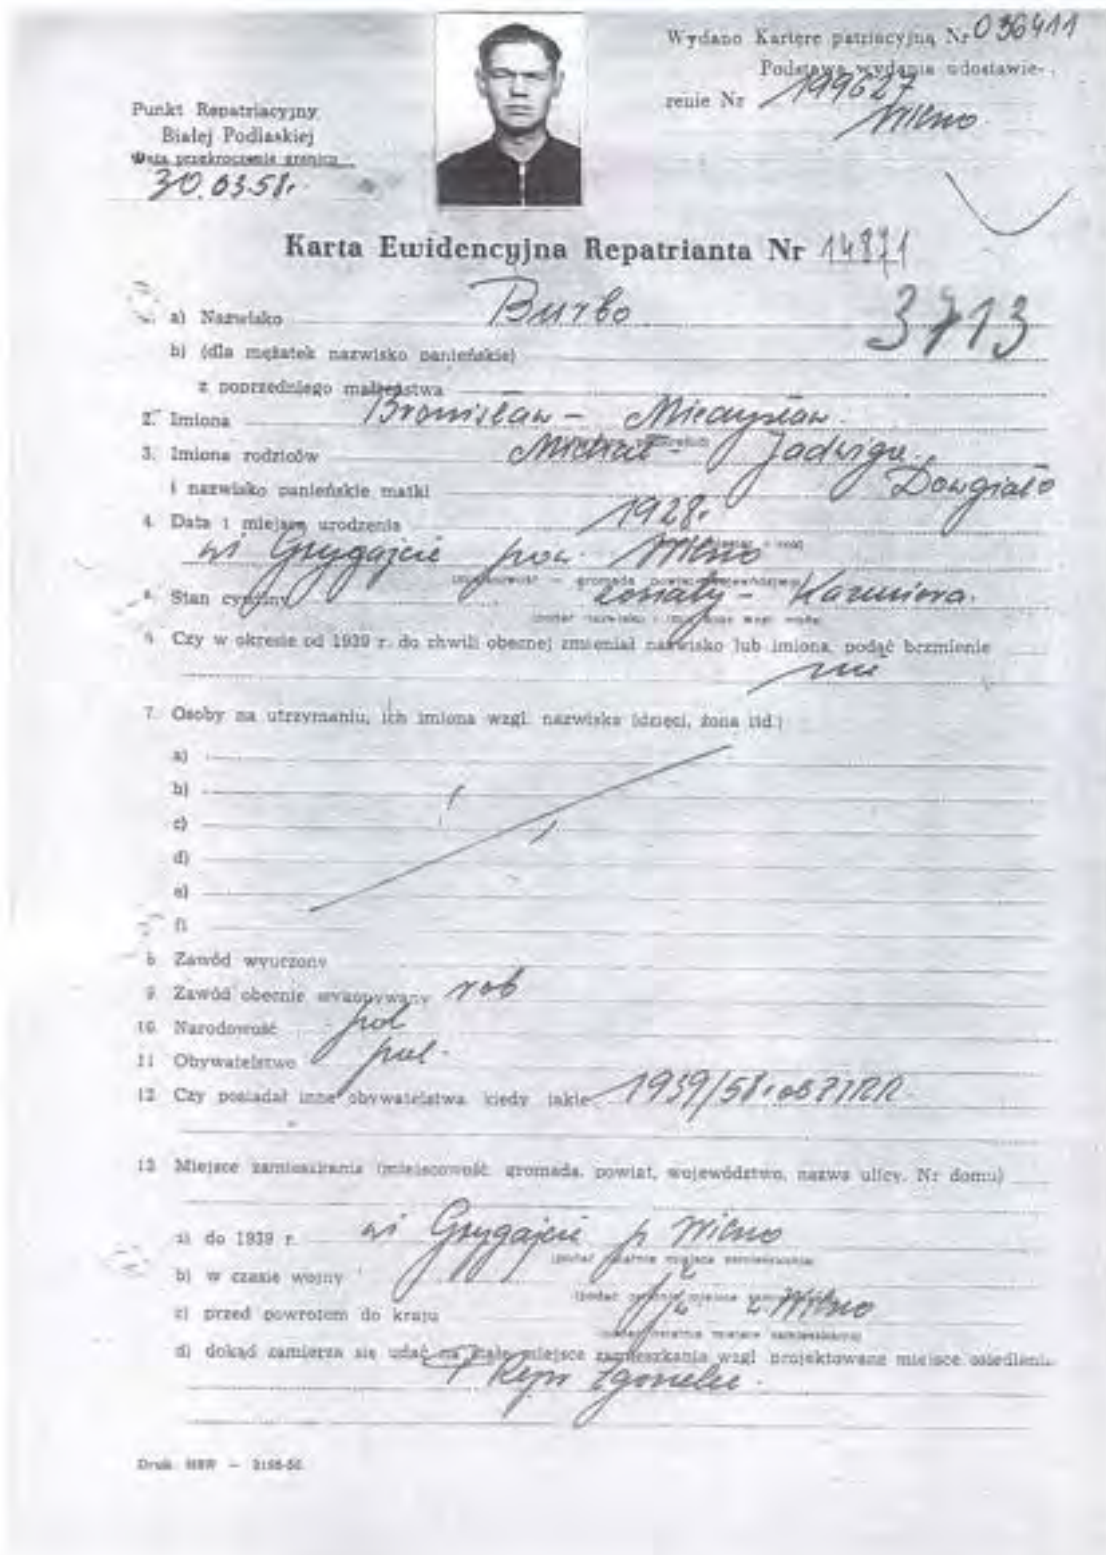 Wydano Kartęre patriacyjną Nr 036411
Podstawa wydania udostawie-
renie Nr 199627
Wilno
Punkt Repatriacyjny
Białej Podlaskiej
Data przekroczenia granicy
30.03.58r.
Karta Ewidencyjna Repatrianta Nr 14871
a) Nazwisko Burbo 3713
b) (dla mężatek nazwisko panieńskie)
z poprzedniego małżeństwa
2. Imiona Bronisław - Mieczysław
3. Imiona rodziców Michał - Jadwiga
i nazwisko panieńskie matki Dowgiało
4. Data i miejsce urodzenia 1928r.
wś Grygajcie pow. Wilno
Stan cywilny żonaty - Kazimiera
Czy w okresie od 1939 r. do chwili obecnej zmieniał nazwisko lub imiona, podąć brzmienie
nie
7. Osoby na utrzymaniu, ich imiona wzgl. nazwiska (dzieci, żona itd.)
a)
b)
c)
d)
e)
f)
Zawód wyuczony
9. Zawód obecnie wykonywany rob
10. Narodowość pol
11. Obywatelstwo pol.
12. Czy posiadał inne obywatelstwa kiedy jakie 1939/58r ob
13. Miejsce zamieszkania (miejscowość, gromada, powiat, województwo, nazwa ulicy, Nr domu)
a) do 1939 r. wś Grygajcie p Wilno
b) w czasie wojny
c) przed powrotem do kraju Wilno
d) dokąd zamierza się udać na stałe miejsce zamieszkania wzgl. projektowane miejsce osiedlenia
Zgorzelec
Druk. MSW